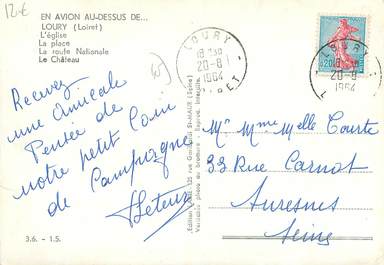 12€
EN AVION AU-DESSUS DE...
LOURY (Loiret)
L'église
La place
La route Nationale
Le Château
LOURY
18H30
20-8
1964
LOIRET
LOURY
20-8
1964
Recevez
une amicale
Pensée de
notre petit Coin
de Campagne
M^r M^me M^elle Courte
33 Rue Carnot
Suresnes
Seine
3.6. - 1.5.